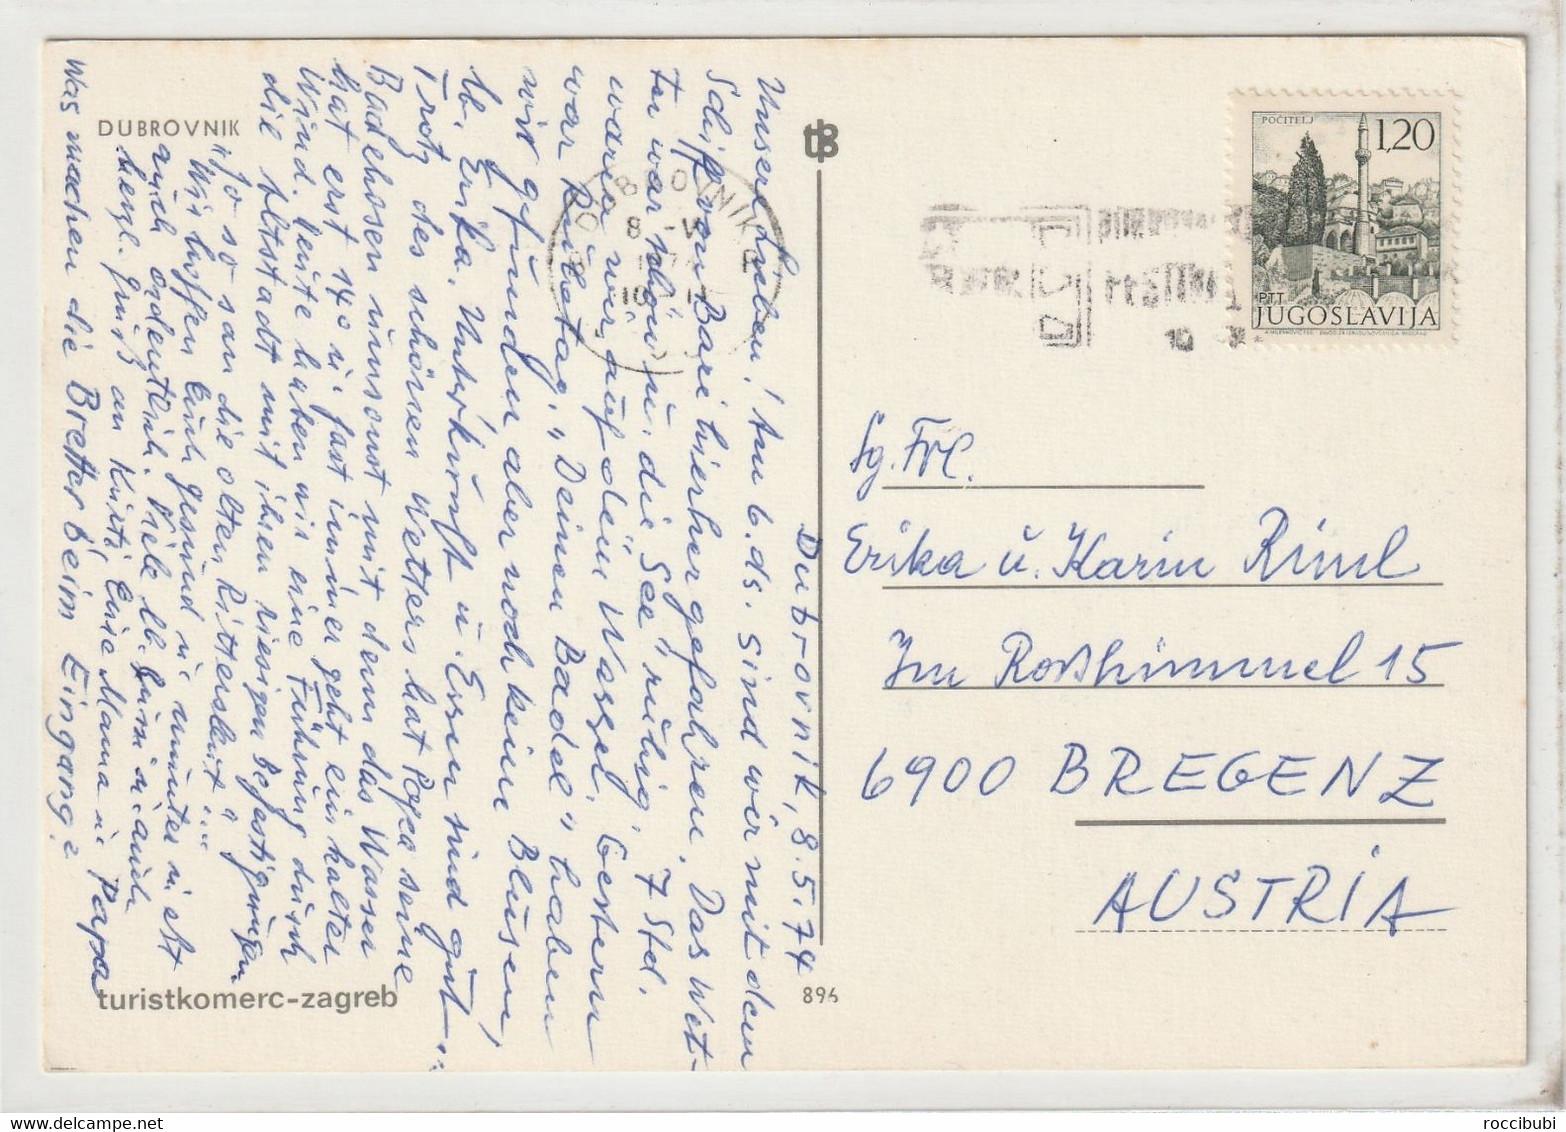 DUBROVNIK
Dubrovnik, 8.5.74
Unsere Lieben! Am 6. ds. sind wir mit dem
Schiff von Bari hierher gefahren. Das Wet-
ter war schön u. die See "ruhig". 7 Std.
waren wir auf dem Wasser. Gestern
war Ruhetag. "Deinen Badel" haben
wir gefunden aber noch kein Blusen,
lb. Erika. Unterkunft u. Essen sind gut.
Trotz des schönen Wetters hat Papa seine
Badehosen umsonst mit denn das Wasser
hat erst 14° u. fast immer geht ein kalter
Wind. Heute haben wir eine Führung durch
die Altstadt mit ihren riesigen Befestigungen.
"Jo so san die olten Rittersleut"...
Wir hoffen Euch gesund u. munter u. eßt
auch ordentlich. Viele lb. u. auch
herzl. Grüß an Kurti, Eure Mama u. Papa
Was machen die Bretter beim Eingang?
DUBROVNIK
8 -V
10
tB
POČITELJ
1,20
PTT
JUGOSLAVIJA
Sg. Frl.
Erika u. Karin Riml
Im Roßhimmel 15
6900 BREGENZ
AUSTRIA
turistkomerc-zagreb
896
roccibubi